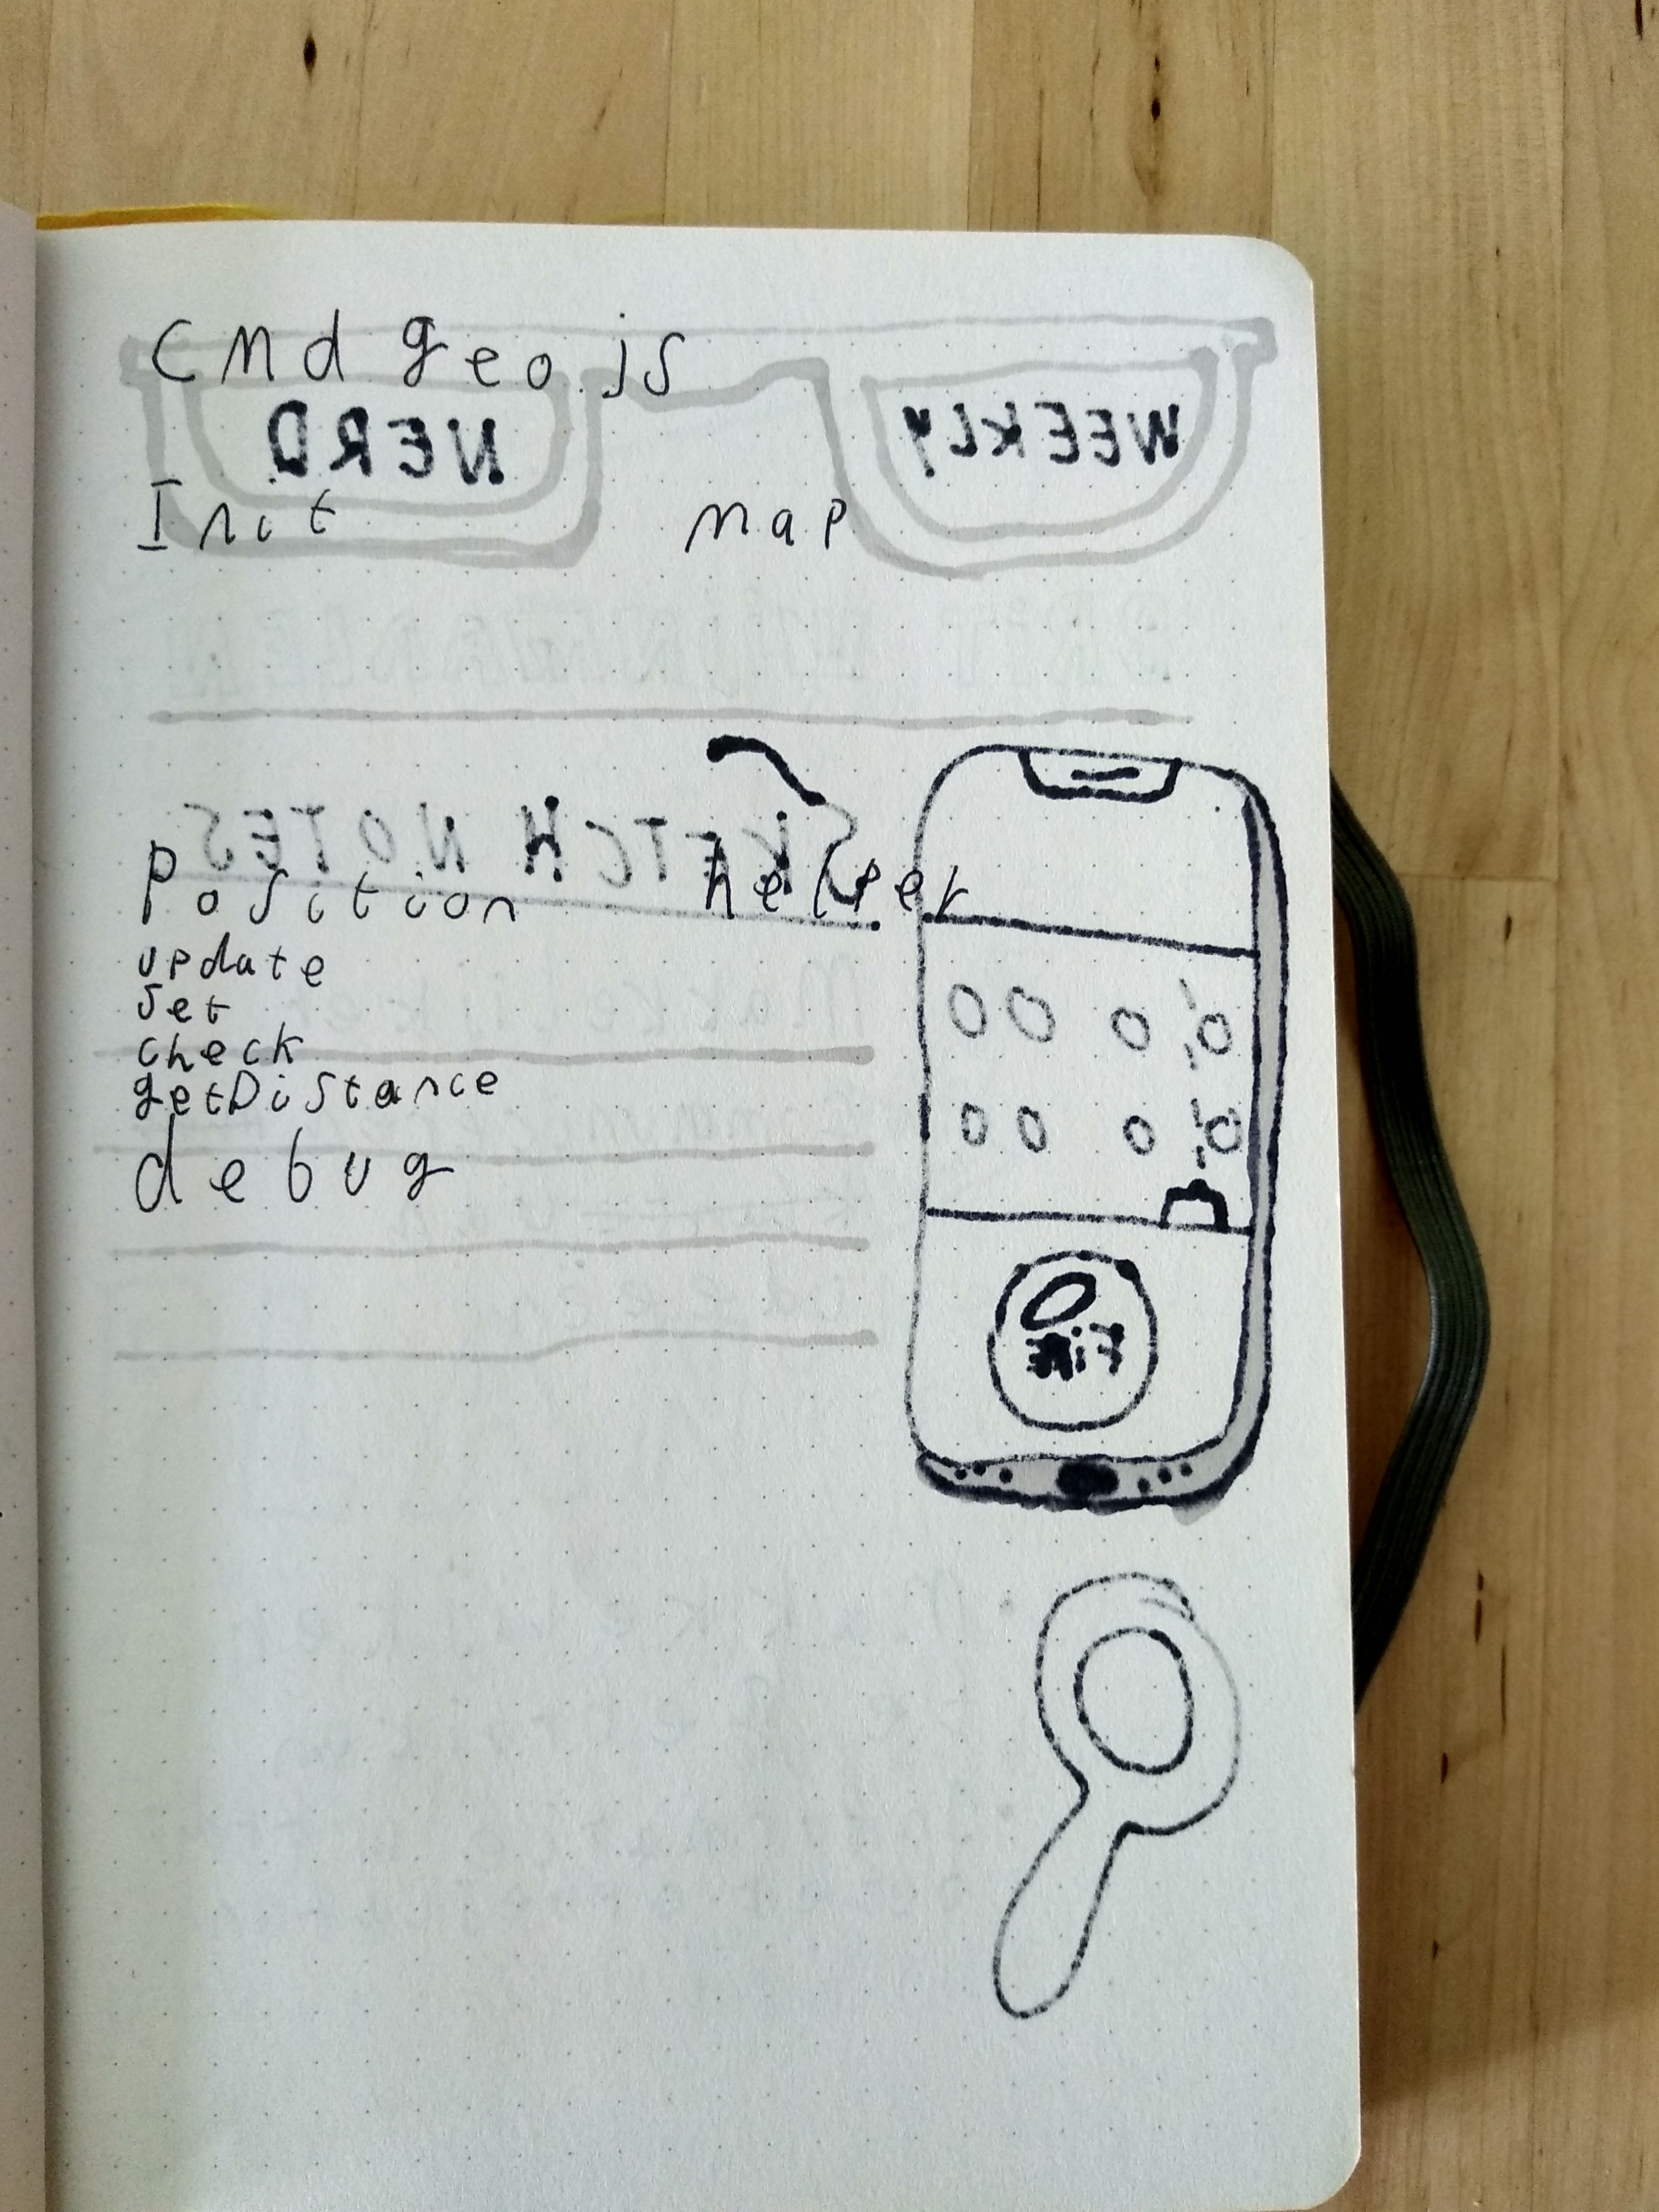 cmd geo.js
NERD WEEKLY
Init map
SKETCH NOTES
Position helper
update
set
check
getDistance
debug